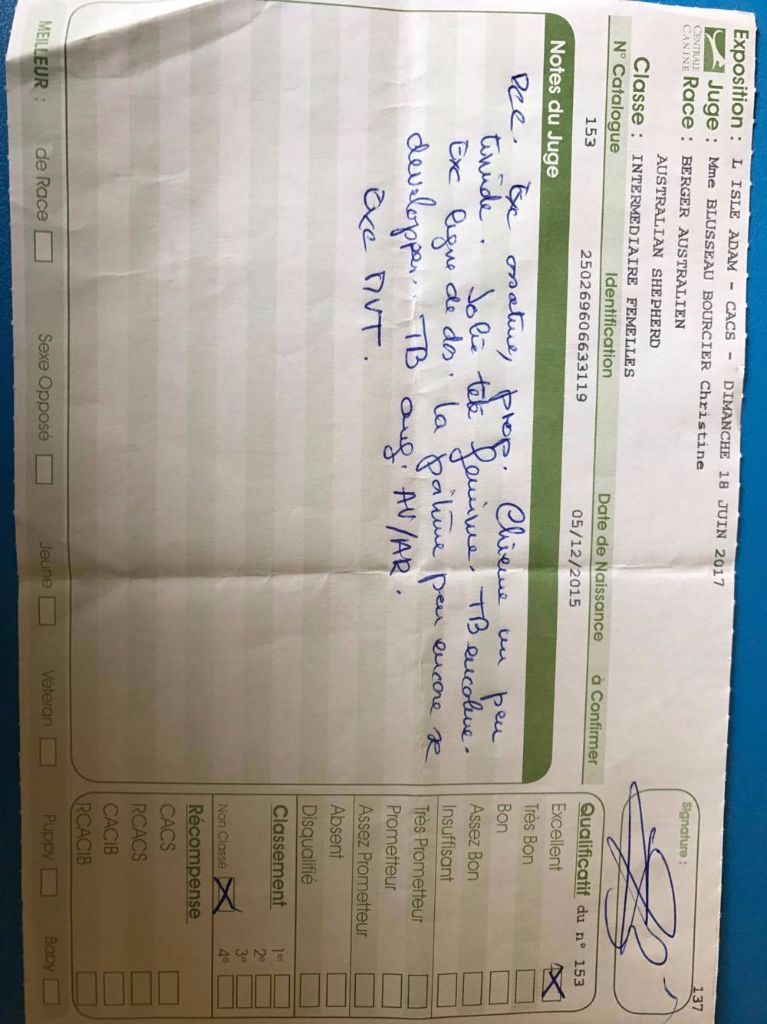 Exposition : L ISLE ADAM - CACS - DIMANCHE 18 JUIN 2017
Juge : Mme BLUSSEAU BOURCIER Christine
CENTRALE
CANINE
Race : BERGER AUSTRALIEN
AUSTRALIAN SHEPHERD
Classe : INTERMEDIAIRE FEMELLES
137
Signature :
N° Catalogue Identification Date de Naissance à Confirmer
153 250269606633119 05/12/2015
Notes du Juge
Dcc. Exc ossature, prop. Chienne un peu
timide. Jolie tête féminine. TB encolure.
Exc ligne de dos. La poitrine peu encore se
developper. TB ang. AV/AR.
Exc MVT.
Qualificatif du n° 153
Excellent
Très Bon
Bon
Assez Bon
Insuffisant
Très Prometteur
Prometteur
Assez Prometteur
Absent
Disqualifié
Classement 1er
2e
3e
Non Classé 4e
Récompense
CACS
RCACS
CACIB
RCACIB
MEILLEUR : de Race Sexe Opposé Jeune Vétéran Puppy Baby